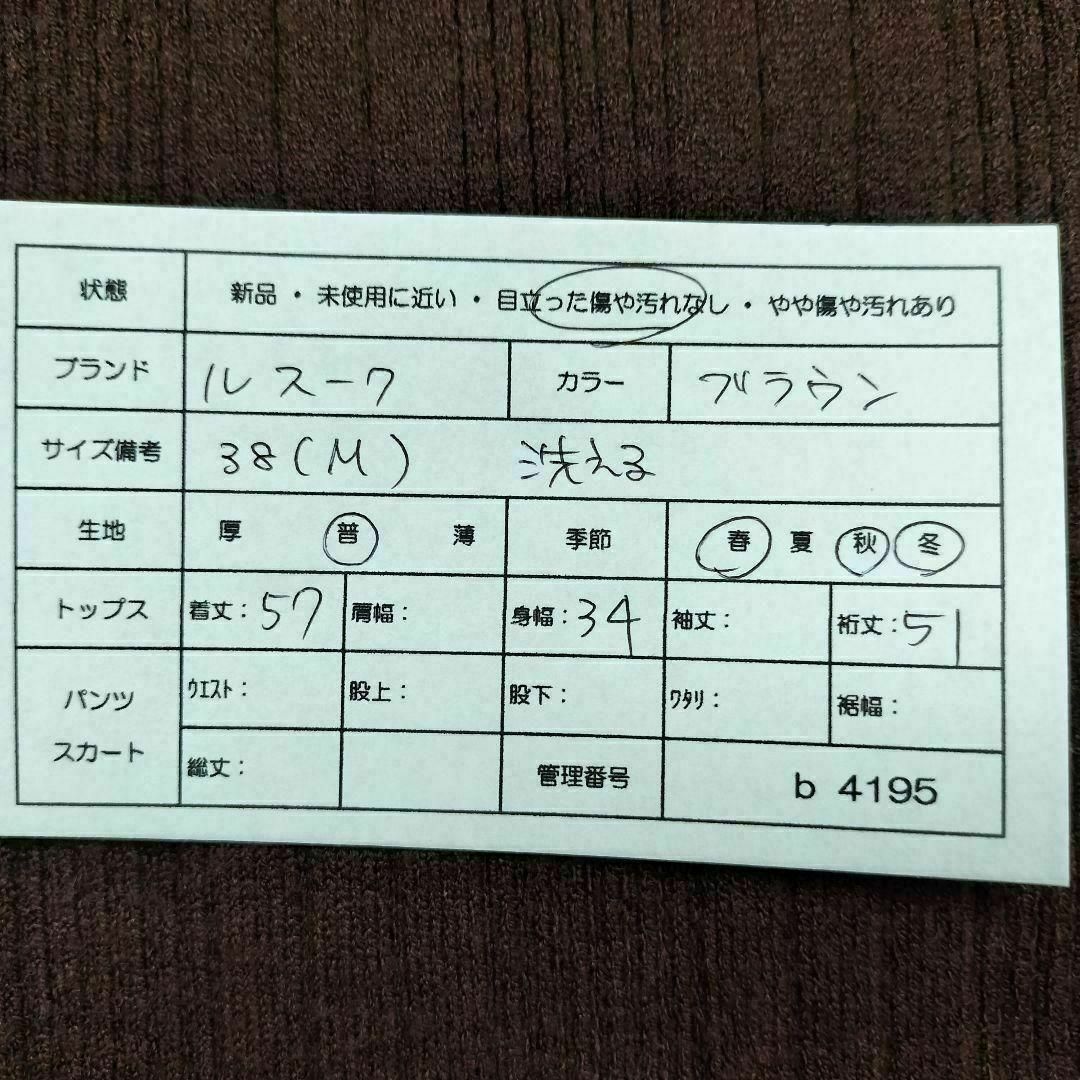 状態 新品 ・ 未使用に近い ・ 目立った傷や汚れなし ・ やや傷や汚れあり
ブランド ルスーク カラー ブラウン
サイズ備考 38(M) 洗える
生地 厚 普 薄 季節 春 夏 秋 冬
トップス 着丈：57 肩幅： 身幅：34 袖丈： 裄丈：51
パンツ スカート
ｳｴｽﾄ： 股上： 股下： ﾜﾀﾘ： 裾幅：
総丈： 管理番号 b 4195